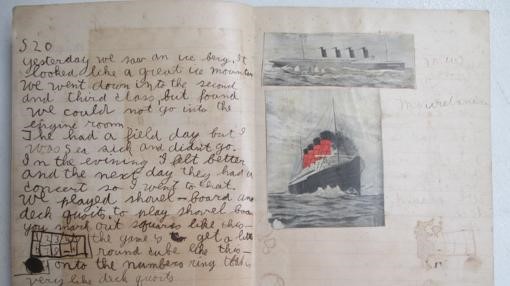 S 20
yesterday we saw an ice berg. It
looked like a great ice mountain
We went down into the second
and third class, but found
we could not go into the
engine room.
The had a field day but I
was sea sick and didn't go.
In the evening I felt better
and the next day they had a
concert so I went to that.
We played shovel-board and
deck quoits, to play shovel board
you mark out squares like this—
the game is to get a little
round cube like this—
onto the numbers ring that is
very like deck quoits
Mauretania